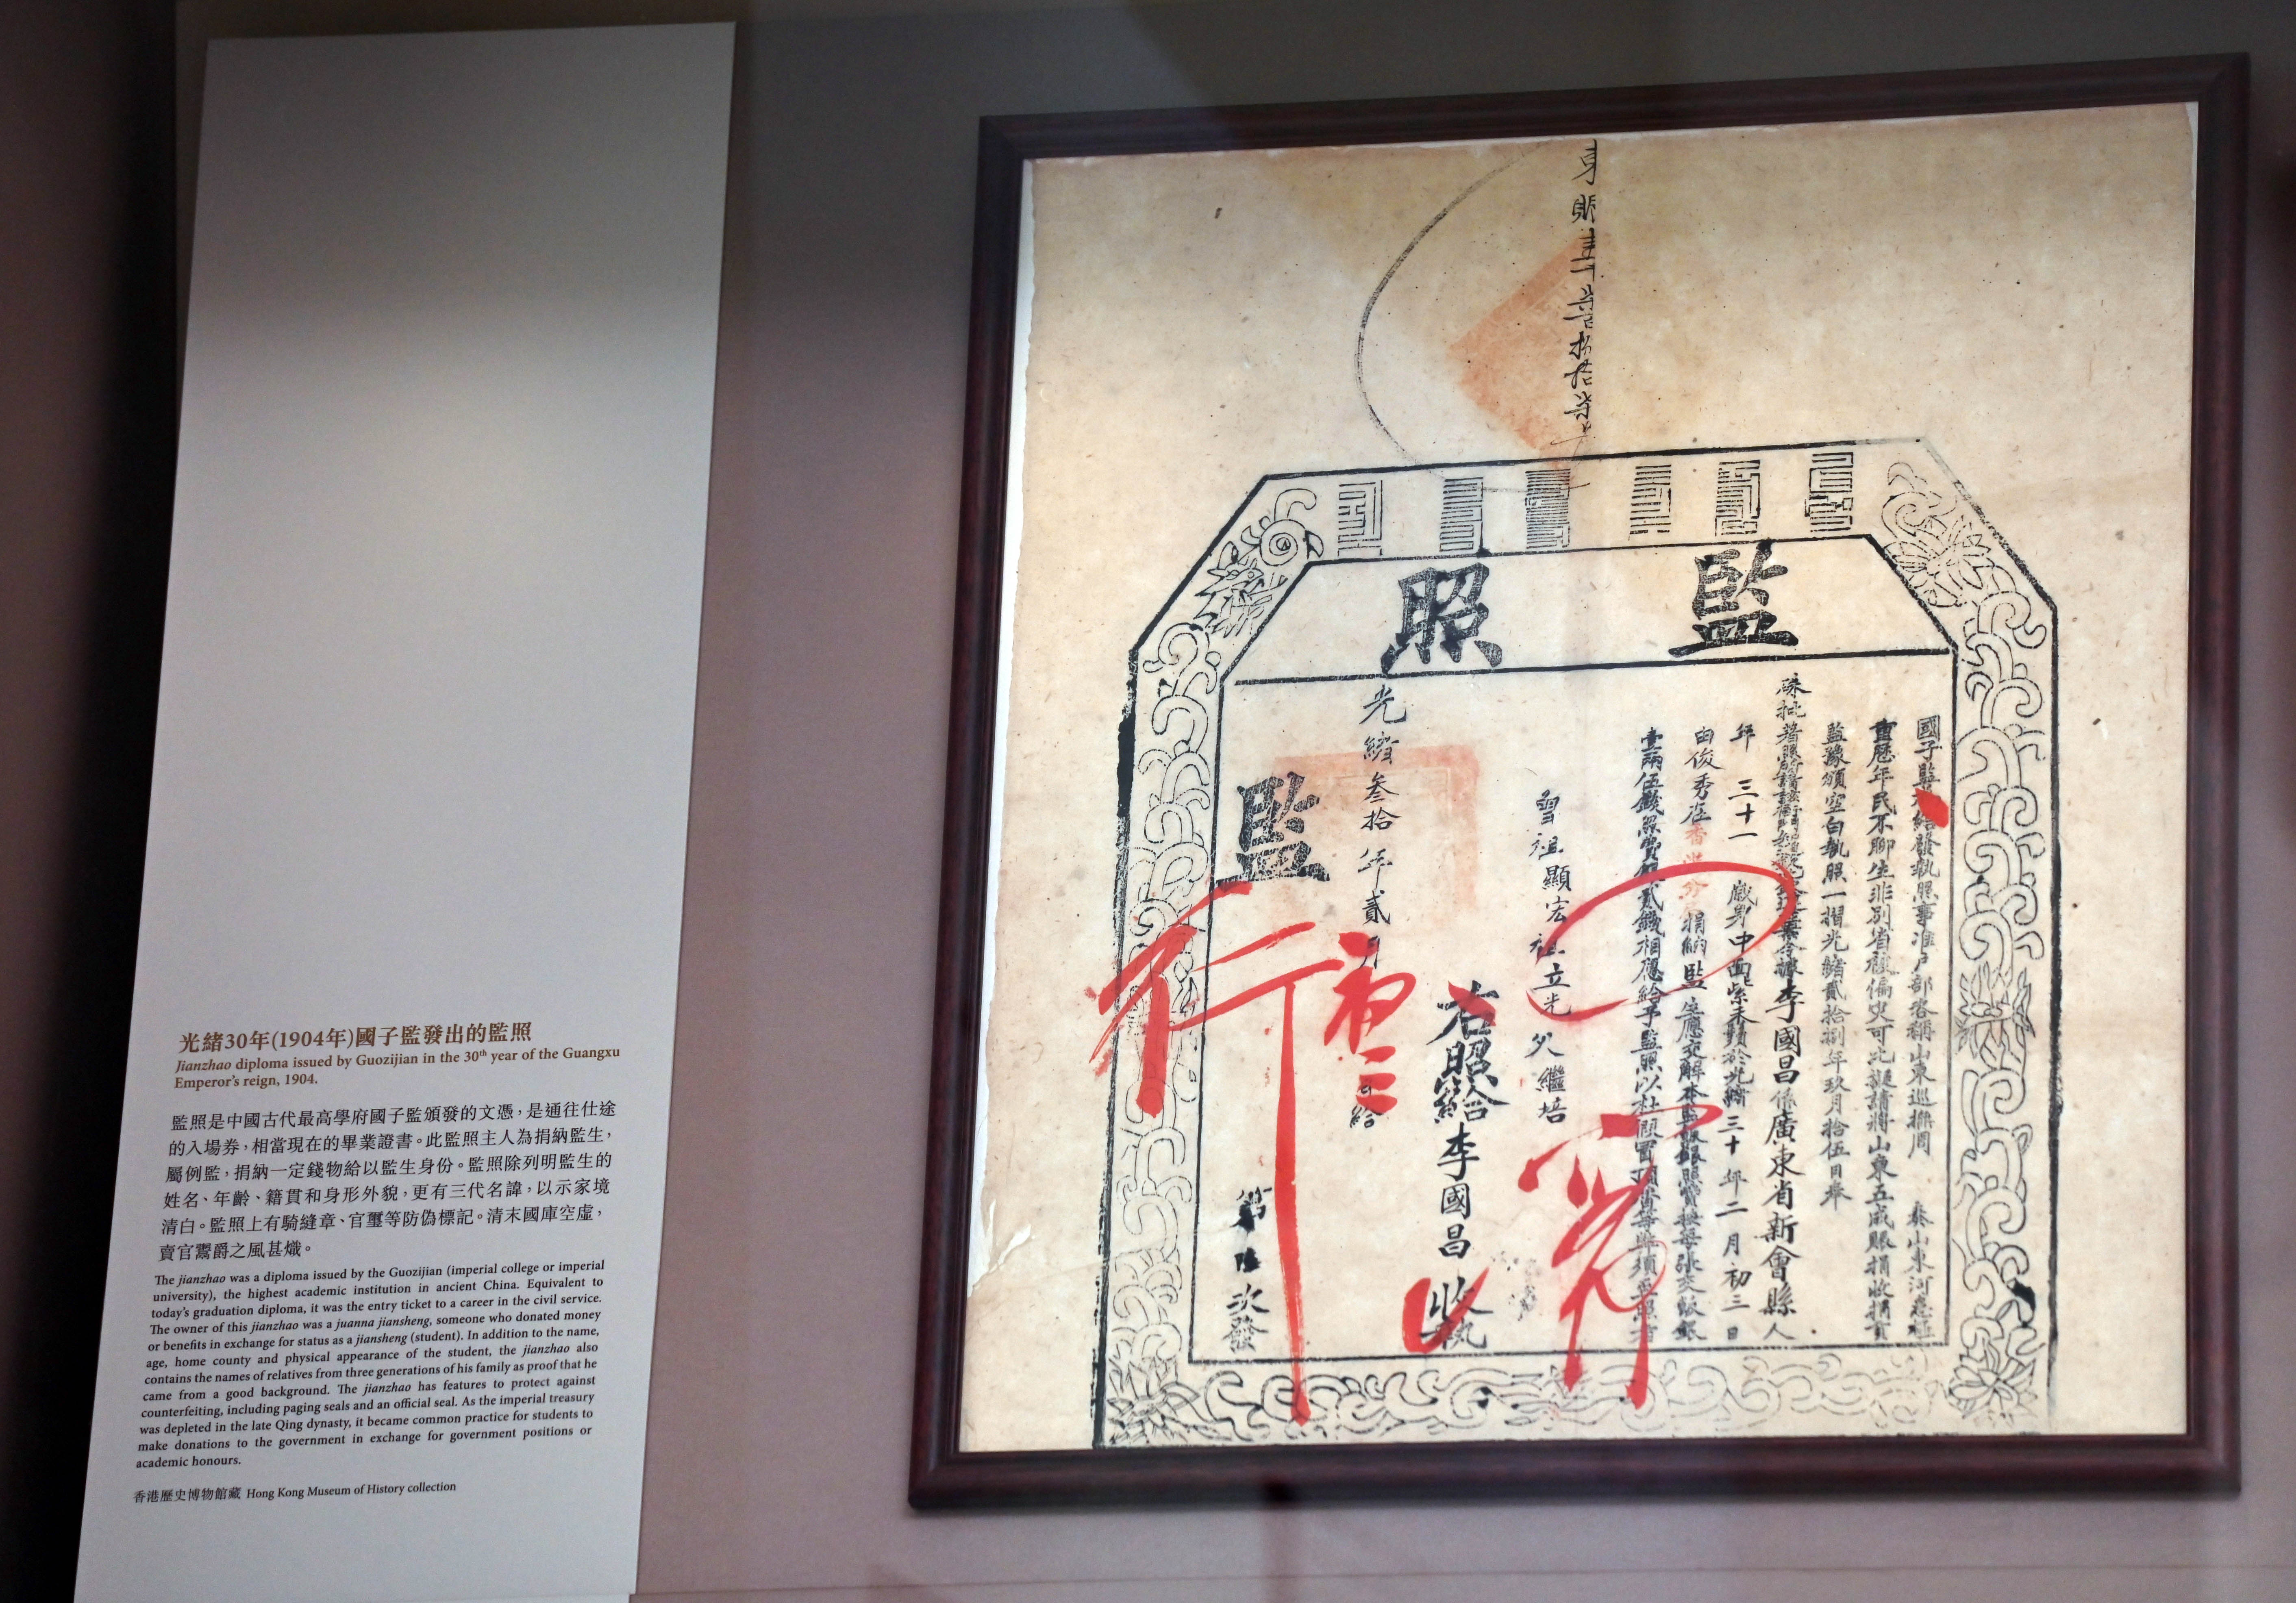 光緒30年(1904年)國子監發出的監照
Jianzhao diploma issued by Guozijian in the 30th year of the Guangxu
Emperor's reign, 1904.
監照是中國古代最高學府國子監頒發的文憑，是通往仕途
的入場券，相當現在的畢業證書。此監照主人為捐納監生，
屬例監，捐納一定錢物給以監生身份。監照除列明監生的
姓名、年齡、籍貫和身形外貌，更有三代名諱，以示家境
清白。監照上有騎縫章、官璽等防偽標記。清末國庫空虛，
賣官鬻爵之風甚熾。
The jianzhao was a diploma issued by the Guozijian (imperial college or imperial
university), the highest academic institution in ancient China. Equivalent to
today's graduation diploma, it was the entry ticket to a career in the civil service.
The owner of this jianzhao was a juanna jiansheng, someone who donated money
or benefits in exchange for status as a jiansheng (student). In addition to the name,
age, home county and physical appearance of the student, the jianzhao also
contains the names of relatives from three generations of his family as proof that he
came from a good background. The jianzhao has features to protect against
counterfeiting, including paging seals and an official seal. As the imperial treasury
was depleted in the late Qing dynasty, it became common practice for students to
make donations to the government in exchange for government positions or
academic honours.
香港歷史博物館藏 Hong Kong Museum of History collection
監照
國子監 給發執照事准戶部咨稱山東巡撫周 奏山東河
重歷年民不聊生非別省 偏災可比擬請將山東五成賑捐收捐貢
監豫頒空白執照一摺光緒貳拾捌年玖月拾伍日奉
硃批著照所請該衙門知道 李國昌係廣東省新會縣人
年三十一歲身中面紫未鬚於光緒三十年二月初三日
由俊秀在 捐納監生應交
壹兩伍錢 照費銀貳錢相應給予監照以杜
曾祖顯宏祖立光父繼培
右照給李國昌收執
光緒叁拾年貳月 給
監
行
第 次發